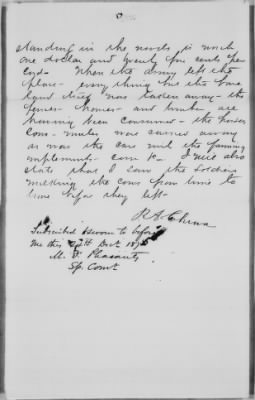 standing in the woods is worth
one dollar and twenty five cents per
Cord - When the army left the
place - every thing but the bare
land itself was taken away - the
fences - houses - and timber are
having been consumed - the horses
Cows - mules were carried away
as was the corn and the farming
implements I will also
state that I saw the soldiers
milking the cows from time to
time before they left -
R A China
Subscribed & sworn to before
me this Oct
M. F. Pleasants
Sp. Comr